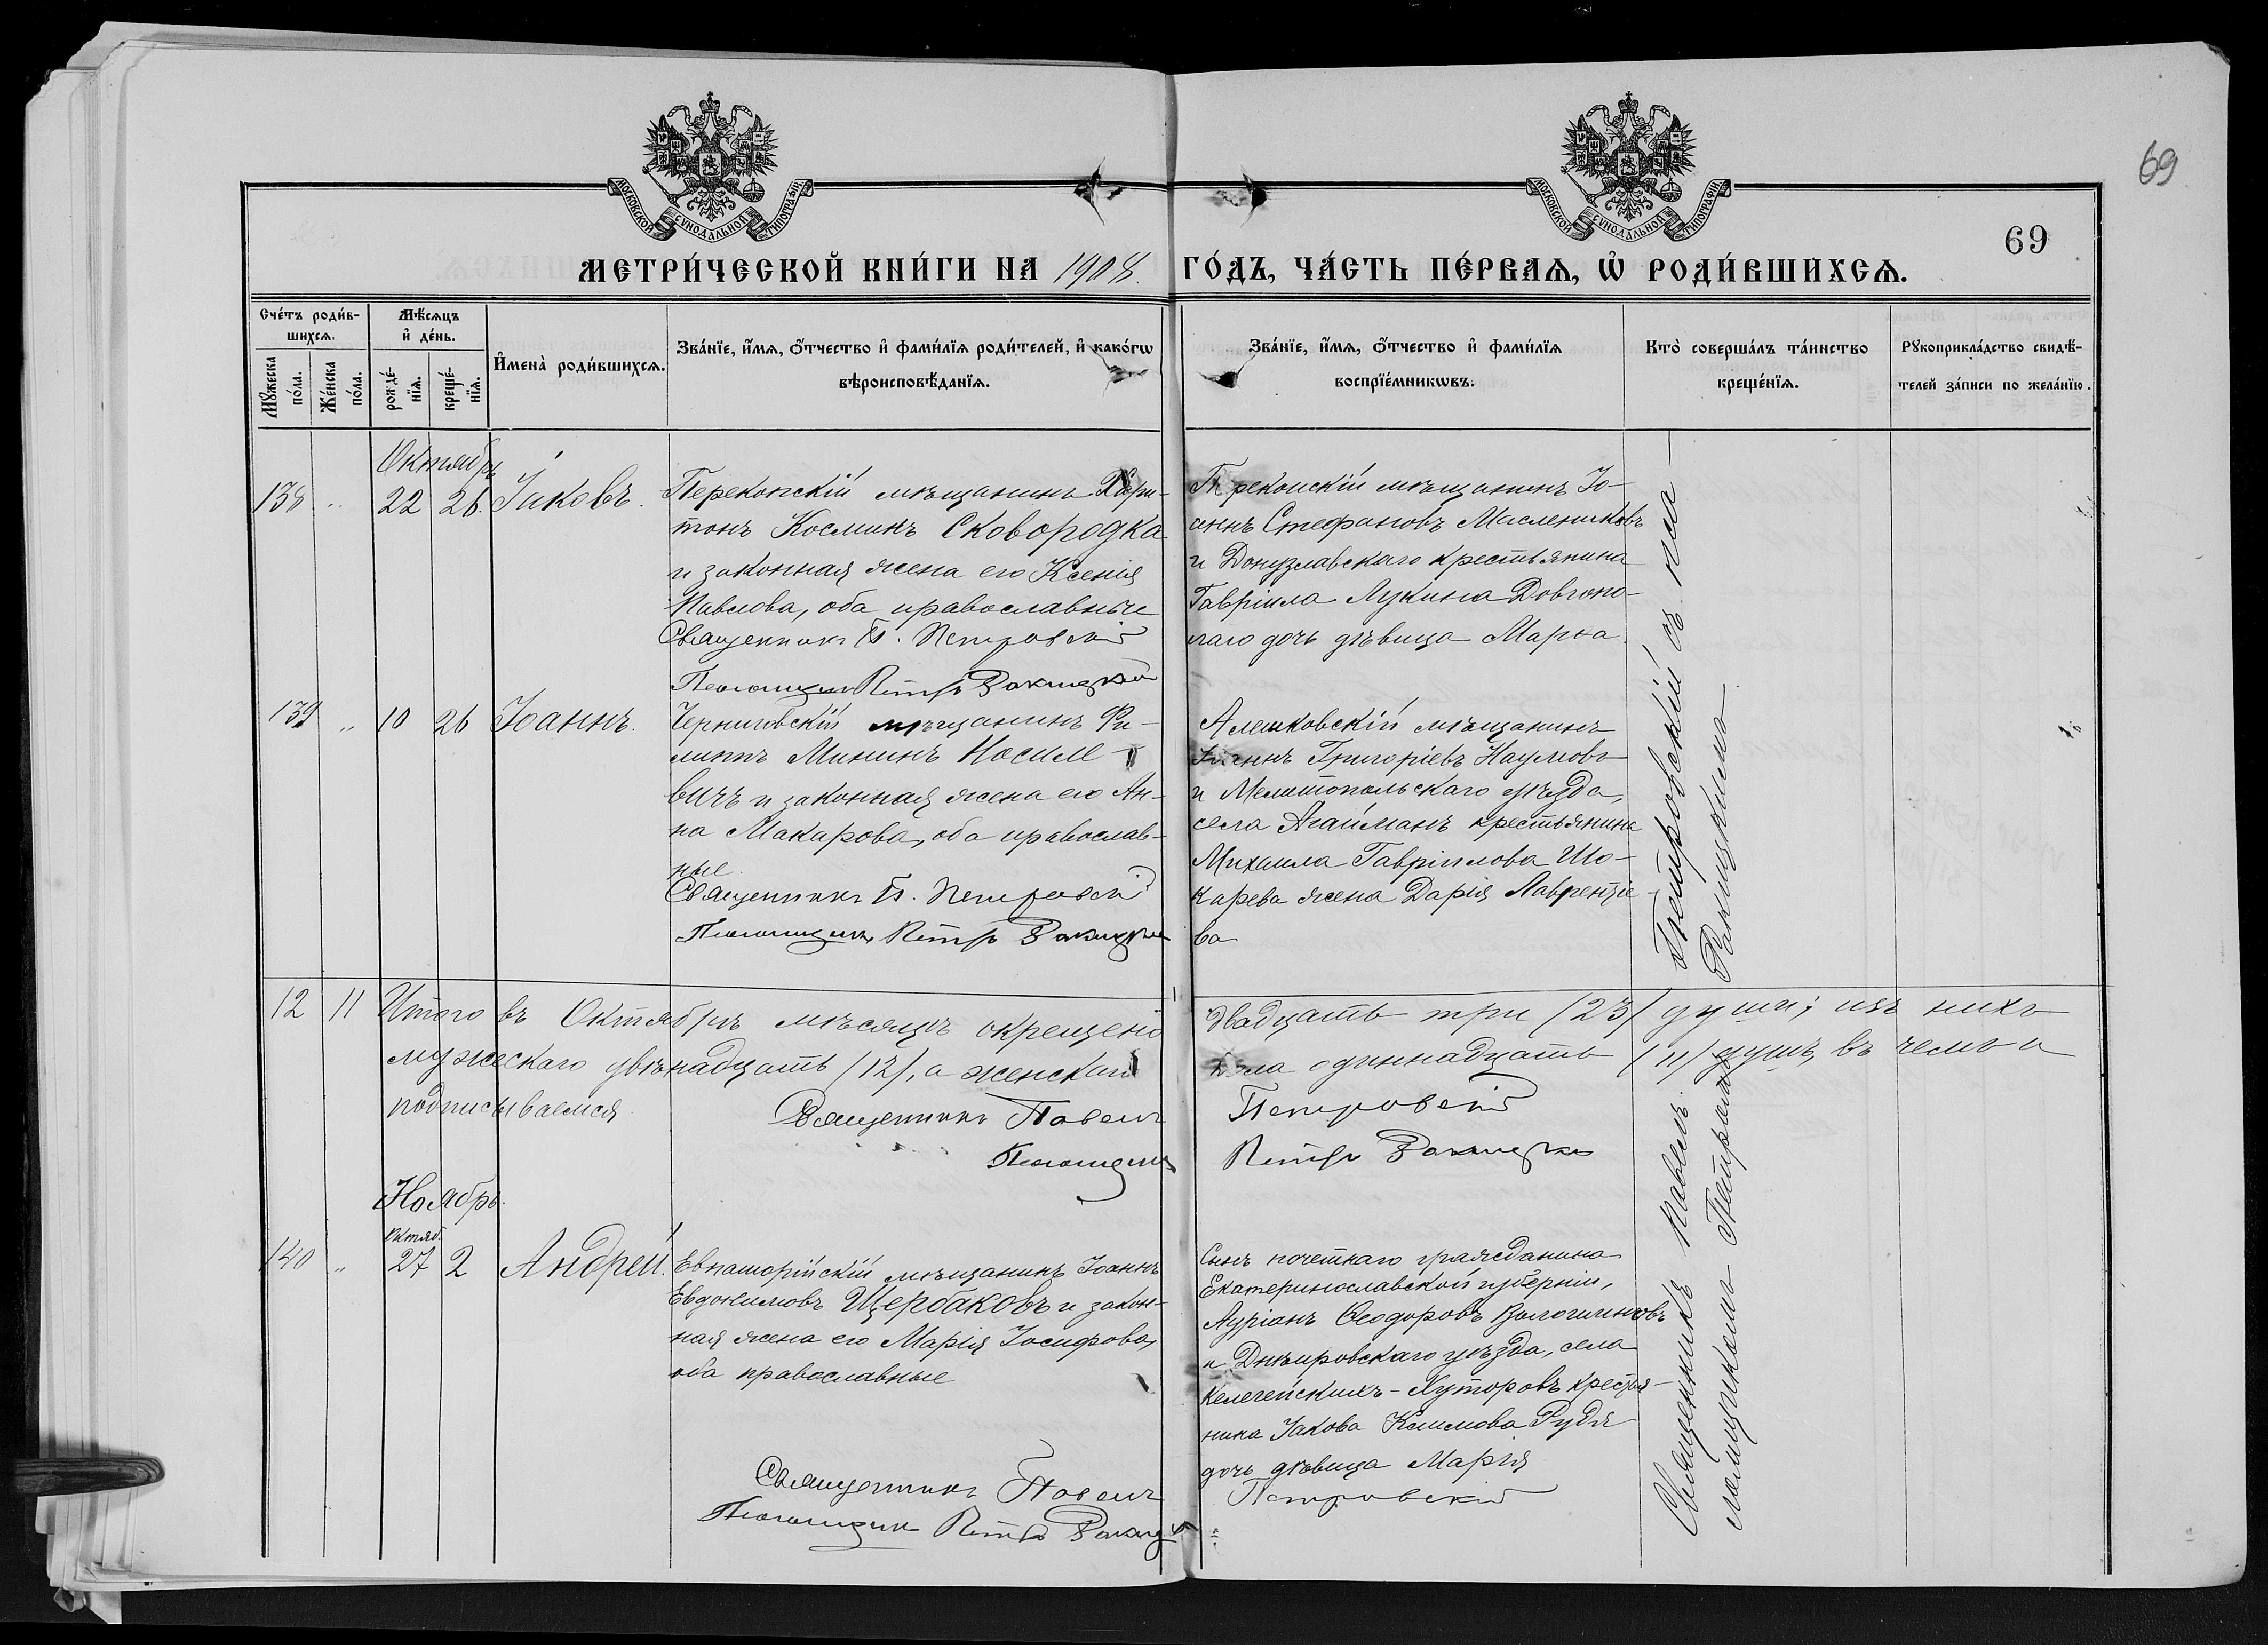 69
МОСКОВСКОЙ СУНОДАЛЬНОЙ ТИПОГРАФІИ
МОСКОВСКОЙ СУНОДАЛЬНОЙ ТИПОГРАФІИ
69
МЕТРИ́ЧЕСКОЙ КНИ́ГИ НА 1908. ГО́ДЪ, ЧА́СТЬ ПЕ́РВАѦ, Ѽ РОДИ́ВШИХСѦ.
Сче́тъ роди́в-
шихсѧ.
Мꙋжеска по́ла.
Же́нска по́ла.
Мѣ́сѧцъ
и҆ де́нь.
рожде́-
нїѧ.
креще́-
нїѧ.
И҆мена̀ роди́вшихсѧ.
Зва́нїе, и҆́мѧ, ѻ҆́тчество и҆ фами́лїѧ роди́телей, и҆ како́гѡ
вѣроисповѣ́данїѧ.
Зва́нїе, и҆́мѧ, ѻ҆́тчество и҆ фами́лїѧ
воспрїе́мникѡвъ.
Кто̀ соверша́лъ та́инство
креще́нїѧ.
Рꙋкоприкла́дство свидѣ́-
телей за́писи по жела́нїю.
Октябрь
138 " 22 26. Іаковъ.
Перекопскій мѣщанинъ Хари-
тонъ Косминъ Сковородка
и законная жена его Ксенія
Павлова, оба православные
Священникъ П. Петровскій
Псаломщикъ Петръ Ракицкій
Перекопскій мѣщанинъ Іо-
аннъ Стефановъ Маслениковъ
и Донузлавскаго крестьянина
Гавріила Лукина Довгопо-
лаго дочь дѣвица Марѳа.
139 " 10 26 Іоаннъ.
Черниговскій мѣщанинъ Фи-
липпъ Мининъ Носиле-
вичъ и законная жена его Ан-
на Макарова, оба православ-
ные.
Священникъ П. Петровскій
Псаломщикъ Петръ Ракицкій
Алешковскій мѣщанинъ
Григоріевъ Наумовъ
и Мелитопольскаго уѣзда,
села Агайманъ крестьянина
Михаила Гавріилова Шо-
карева жена Дарія Лаврентіе-
ва
12 11 Итого въ Октябрѣ мѣсяцѣ окрещено двадцать три (23) души; изъ нихъ
мужескаго двѣнадцать (12), а женскаго пола одиннадцать (11) душъ, въ чемъ и
подписываемся.
Священникъ Павелъ Петровскій
Псаломщикъ Петръ Ракицкій
Ноябрь.
Октяб.
140 " 27 2 Андрей.
Евпаторійскій мѣщанинъ Іоаннъ
Евдокимовъ Щербаковъ и закон-
ная жена его Марія Іосифова,
оба православные
Священникъ Павелъ Петровскій
Псаломщикъ Петръ Ракицкій
Сынъ почетнаго гражданина
Екатеринославской губерніи,
Ѳеодоровъ
и Днѣпровскаго уѣзда, села
Келегейскихъ-Хуторовъ крестья-
нина Іакова Климова Рудя
дочь дѣвица Марія
Священникъ Павелъ Петровскій съ пса-
ломщикомъ Петромъ Ракицкимъ